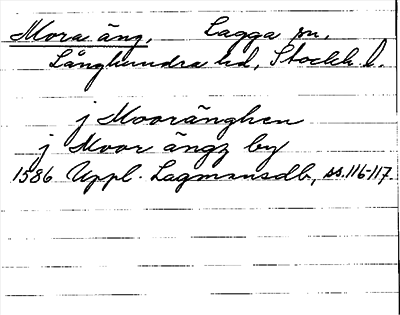 Mora äng, Lagga sn,
Långhundra hd, Stockh. l.
j Mooränghen
j Moor ängz by
1586 Uppl. Lagmansdb, ss. 116-117.